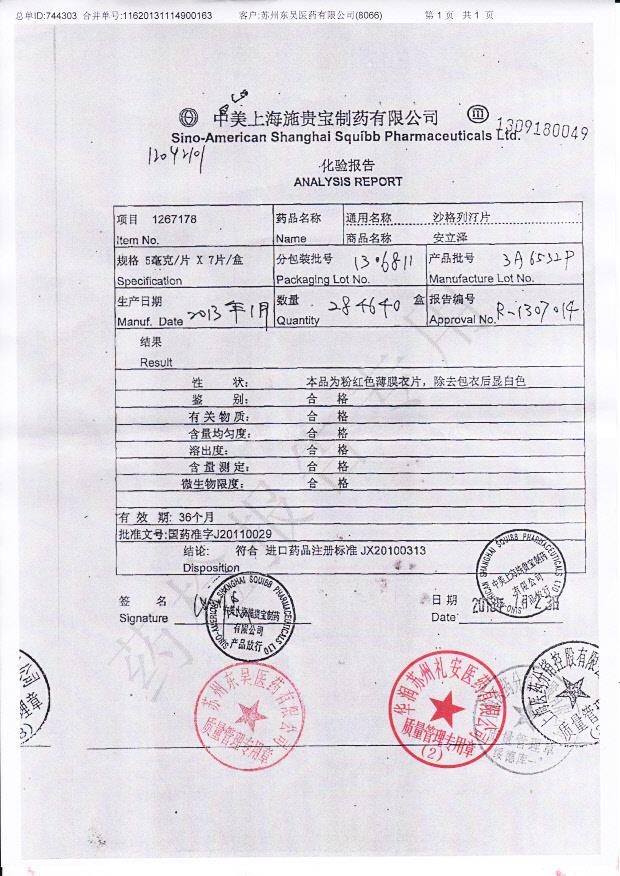 总单ID:744303 合并单号:11620131114900163 客户:苏州东吴医药有限公司(8066) 第 1 页 共 1 页
中美上海施贵宝制药有限公司
Sino-American Shanghai Squibb Pharmaceuticals Ltd.
1309180049
1204201
化验报告
ANALYSIS REPORT
项目 1267178 药品名称 通用名称 沙格列汀片
Item No. Name 商品名称 安立泽
规格 5毫克/片 X 7片/盒 分包装批号 1306811 产品批号 3A6532P
Specification Packaging Lot No. Manufacture Lot No.
生产日期 2013年1月 数量 284640 盒 报告编号
Manuf. Date Quantity Approval No. R-1307014
结果
Result
性 状: 本品为粉红色薄膜衣片，除去包衣后显白色
鉴 别: 合 格
有关物质: 合 格
含量均匀度: 合 格
溶出度: 合 格
含量测定: 合 格
微生物限度: 合 格
有 效 期: 36个月
批准文号:国药准字J20110029
结论: 符合 进口药品注册标准 JX20100313
Disposition
签 名 日 期
Signature Date
SINO-AMERICAN SHANGHAI SQUIBB PHARMACEUTICALS LTD
中美上海施贵宝制药
有限公司
产品放行
苏州东吴医药有限公司
质量管理专用章
华润苏州礼安医药有限公司
质量管理专用章
(2)
上海医药分销控股有限公司